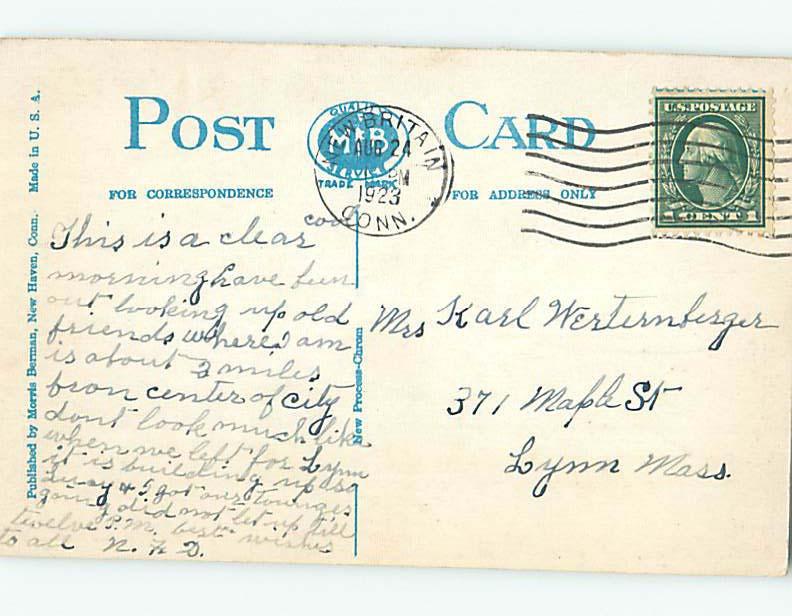 POST CARD
QUALITY
M B
SERVICE
TRADE MARK
NEW BRITAIN
AUG 24
PM
1923
CONN.
U.S. POSTAGE
1 CENT 1
FOR CORRESPONDENCE
FOR ADDRESS ONLY
Made in U. S. A.
Published by Morris Berman, New Haven, Conn.
New Process-Chrom
This is a clear cool
morning have been
out looking up old
friends where I am
is about 3 miles
from center of city
dont look much like
when we left for Lynn
it is building up so
& I got our tounges
going did not let up till
twelve P.M. best wishes
to all N. F. D.
Mrs Karl Werternberger
371 Maple St
Lynn Mass.